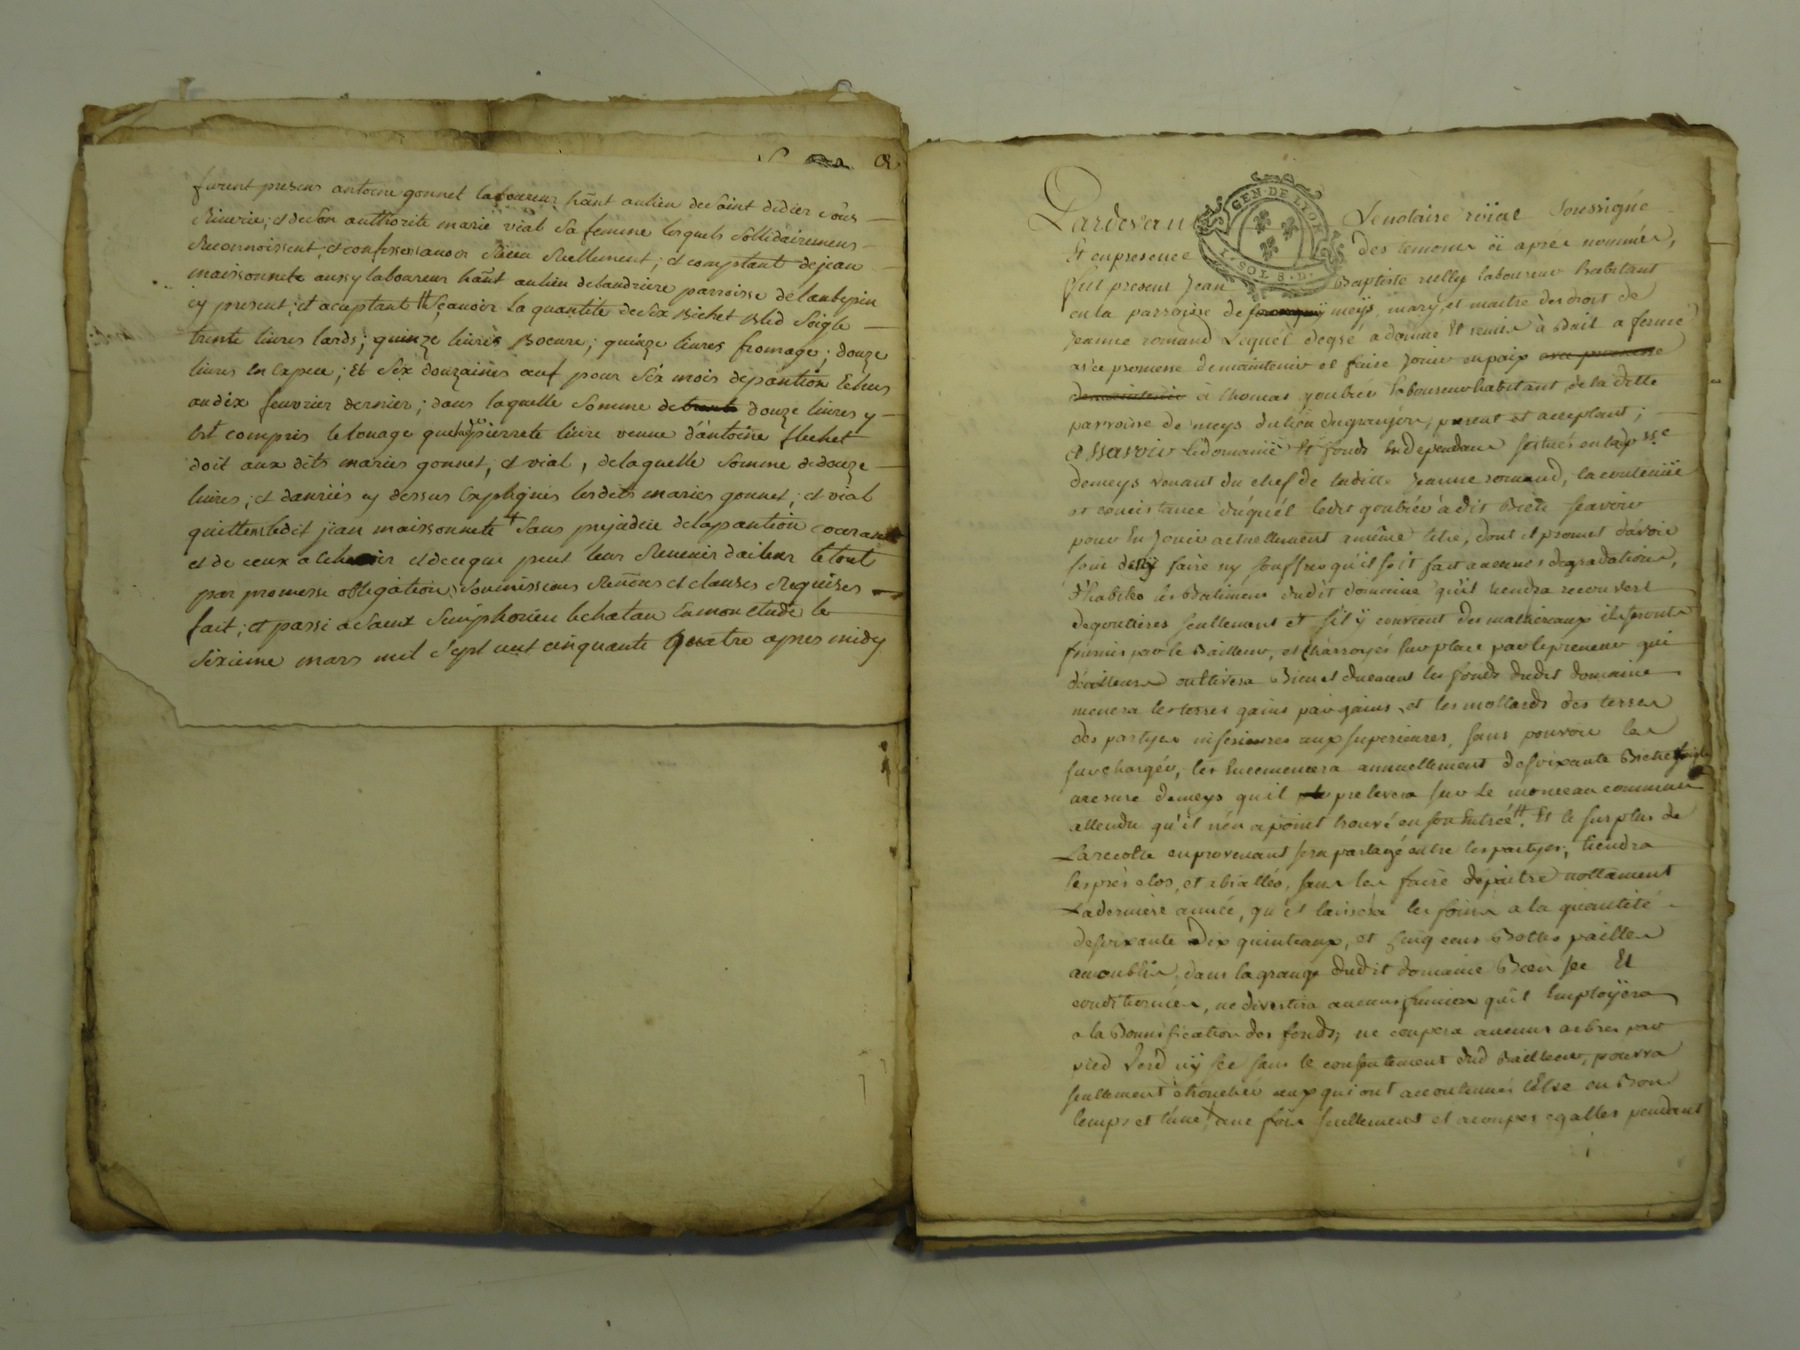 furent presens antoine gonnet laboureur hant au lieu de saint didier sous
Riverie; et de son authorite marie vial sa femme lesquels sollidairement
Reconnoissent, et confessent avoir Receu Reellement; et comptant de jean
maissonnete aussy laboureur hant au lieu de landriere parroisse de laubepin
cy present; et aceptant # sçauoir la quantite de six Bichet Bled seigle
trente livres lards; quinze livres Boeure; quinze livres fromage; douze
livres en espece; Et six douzaines œuf pour six mois de pantion Echus
au dix feuvrier dernier; dans laquelle somme de douze livres y
Est compris le louage que pierrete veuve d'antoine flechet
doit aux dits maries gonnet, et vial, de laquelle somme de douze
livres; et danrées cy dessus Expliqués lesdits maries gonnet; et vial
quittent ledit jean maissonnete + sans prejudice de la pantion courante
et de ceux a Echeoir et de ce que peut leur Revenir dailleur le tout
par promesse obligation, soumissions Renons et clauses Requises
fait; et passé a saint Simphorien le chatau En mon etude le
sixieme mars mil sept cent cinquante quatre apres midy
Pardevant Le notaire roïal soussigné
Et en presence des temoins ci aprés nommés,
GEN · DE LION
1 · SOL 8 · D ·
fut present Jean Baptiste laboureur habitant
en la parroisse de meÿs, mary et maitre des droit de
Jeanne romand Lequel de gré a donné Et remis à Bail a ferme
avec promesse de maintenir et faire Jouir en paix
à thomas goubier laboureur habitant de la ditte
parroisse de meys du lieu de present et acceptant;
A ssavoir le domaine Et fonds En dependant scitués en lad psse
de meys venant du chef de ladite Jeanne romand, la contenüe
et concistance duquél ledit goubier à dit Bien sçavoir
pour En Jouir actuellement a même titre, dont il promet d'avoir
soin de ny faire ny souffrir qu'il soit fait aucunes degradations,
d'habiter les Batiments dudit domaine qu'il tiendra recouvert
de goutieres seullement et s'il ÿ convient des mathereaux ils seront
fournis par le Bailleur, et charroyés sur place par le preneur qui
d'ailleurs cultivera Bien et duement les fonds dudit domaine
menera les terres gains par gains, et les mollards des terres
des partyes inferieures aux superieures, sans pouvoir les
surchargér, les Encemencera annuellement de soixante Bichets seigle
mesure de meys qu'il prelevera sur Le monceau commun
attendu qu'il n'en a point trouvé en son Entrée #. Et le surplus de
La recolte en provenant sera partagé entre les partyes, tiendra
les prés clos, et abiallés, sans les faire depaitre nottament
La derniere année, qu'il laissera les foins a la quantité
de soixante Dix quinteaux, et cinq cens Bottes pailles
dans la grange dudit domaine Bien sec Et
conditionnées, ne divertira aucuns fumiers qu'il Employëra
a la Bonnification des fonds, ne coupera aucuns arbres par
pied Verd nÿ sec sans le consentement dud Bailleur, pourra
seullement ceux qui ont accoutumés L'Etre en Bon
temps et une fois seullement et a coupes egalles pendant